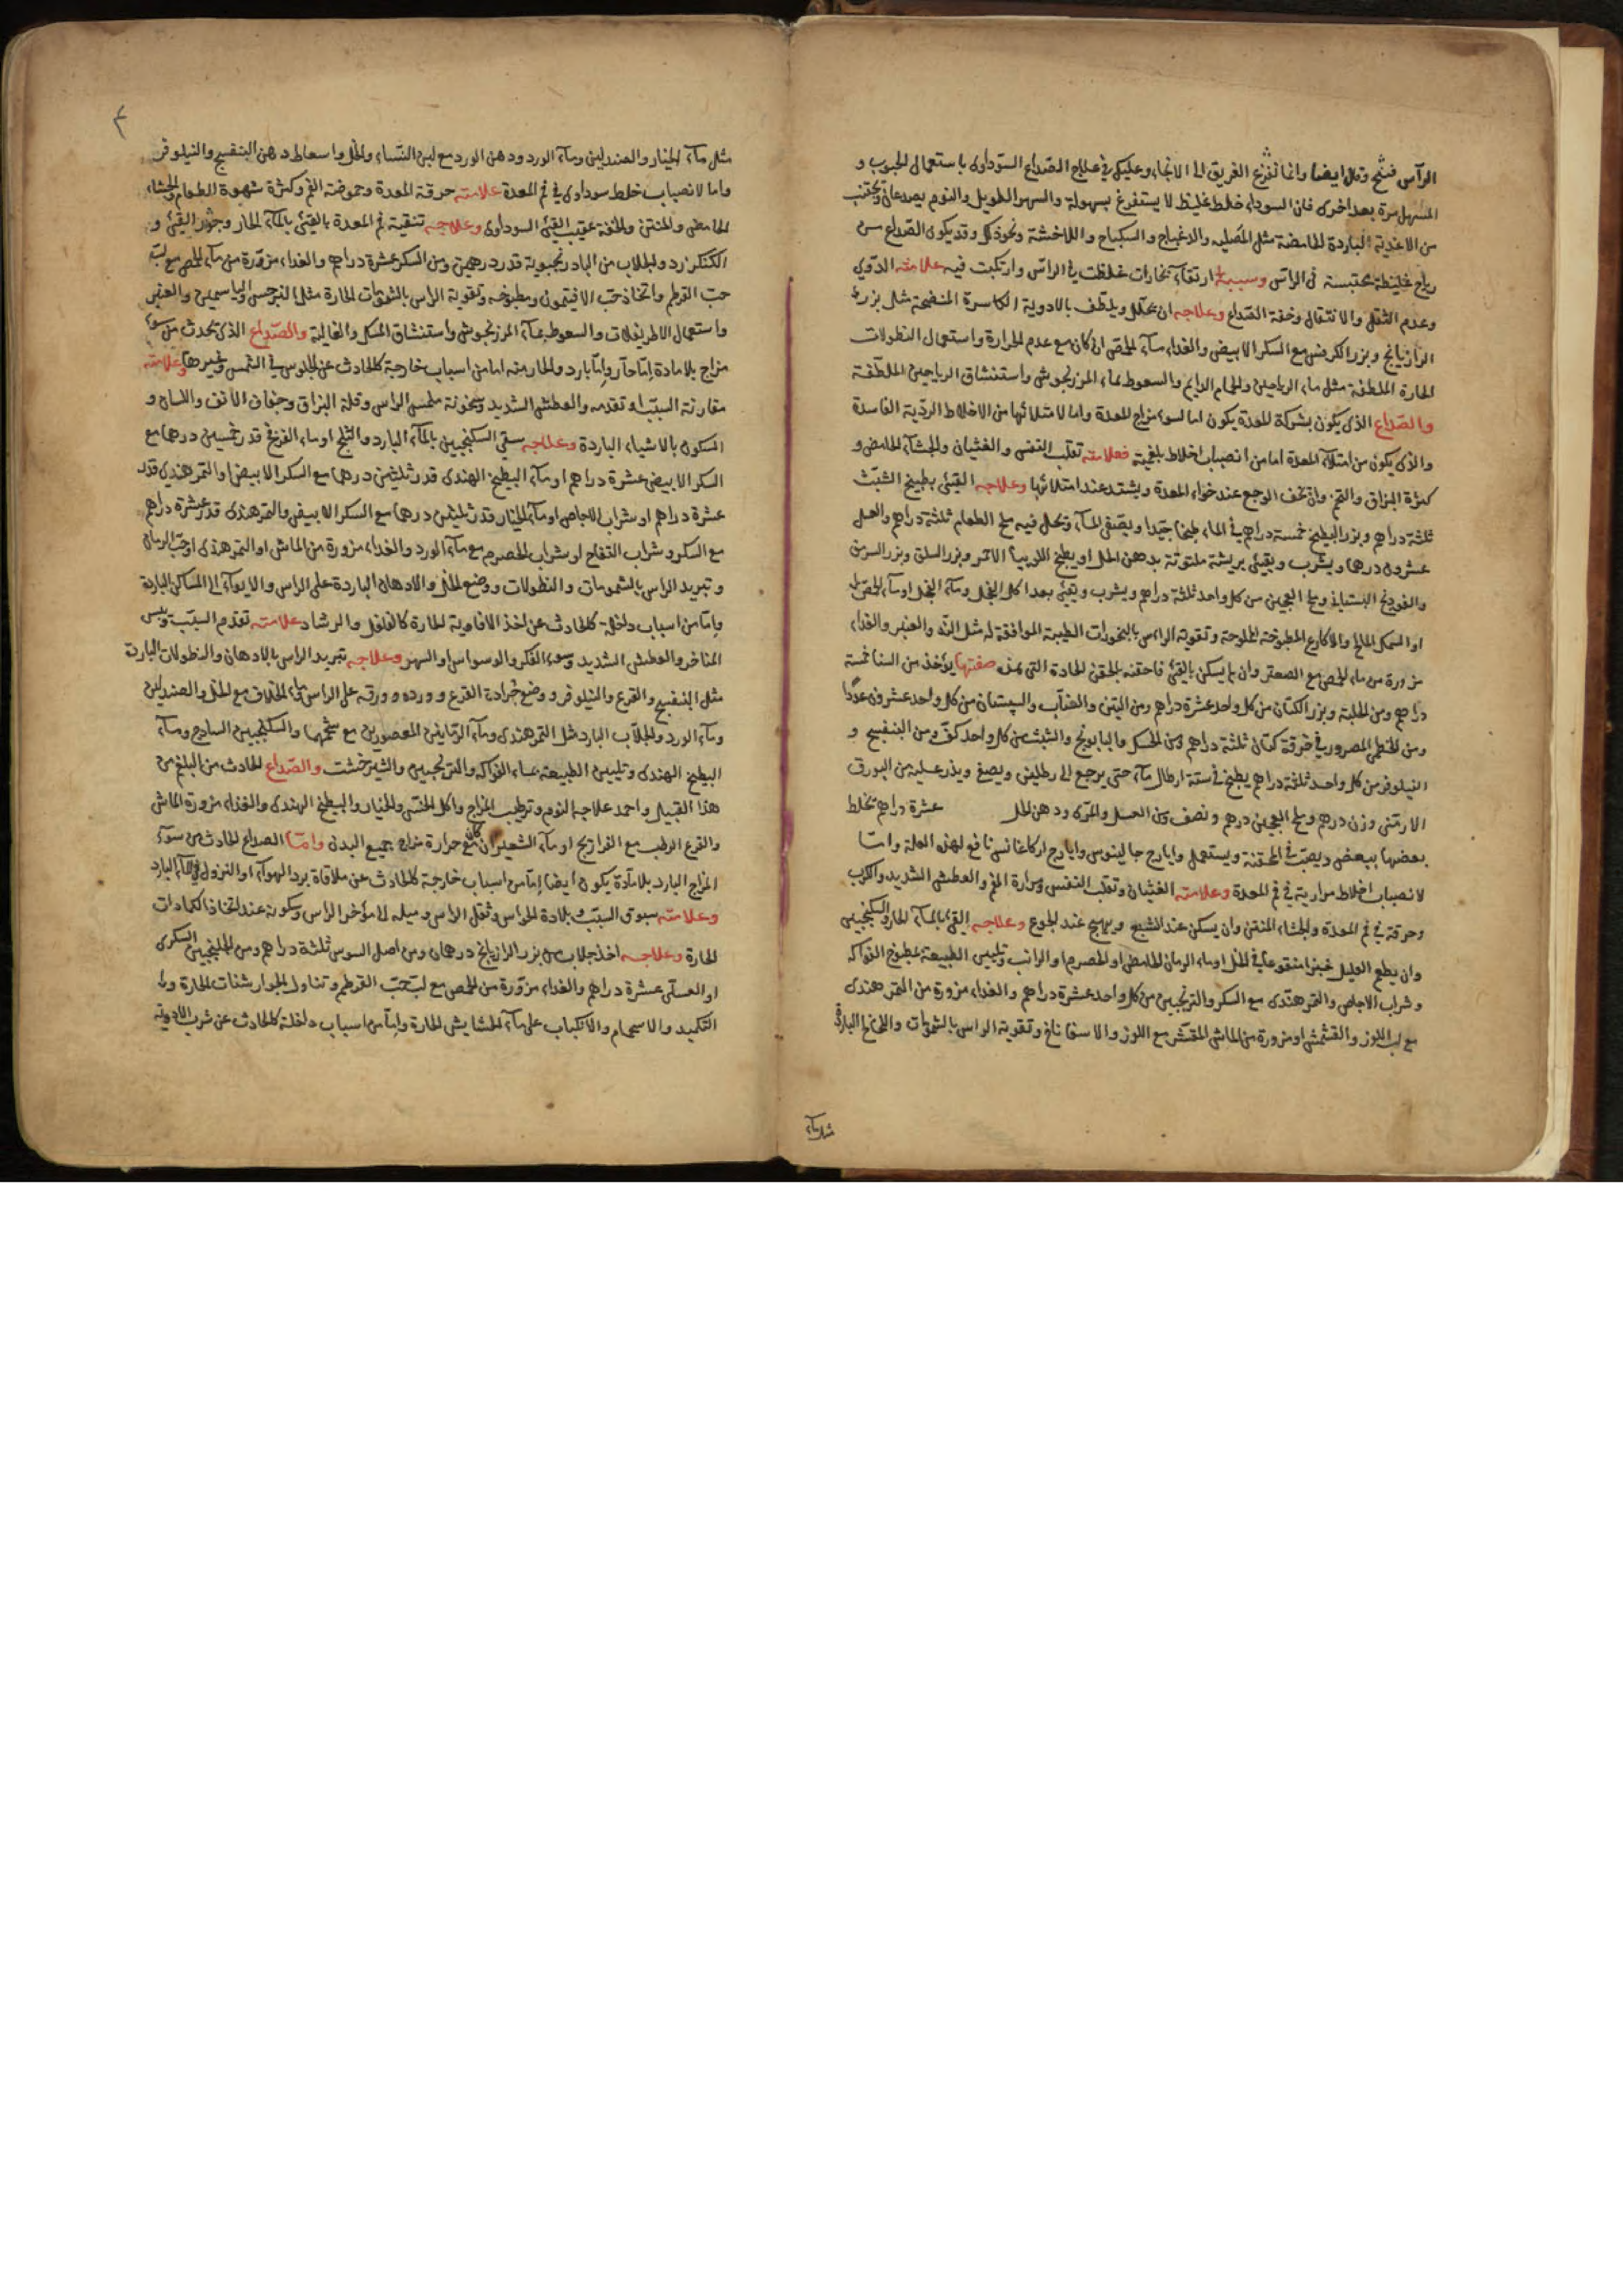 الرأس فتنتح وقل ايضا وانما تفزع الغريق الى الانجاء وعليك في علاج الصداع السوداوى باستعمال الحبوب و
المسهل مرة بعد اخرى فان السوداء خلط غليظ لا يستفرغ بسهولة والسهر الطويل والنوم يصدعان ويجتنب
من الاغذية الباردة الحامضة مثل المصلية والسكباج ونحو ذلك وقد يكون الصداع من
رياح غليظة محتبسة فى الرأس وسببه ارتقاء بخارات غلظت في الراس وارتكبت فيه علامته الدوي
وعدم الثقل والانتقال وخفة الصداع وعلاجه ان يحلل ويلطف بالادوية الكاسرة المنضجة مثل بزر
الرازيانج وبزر الكرفس مع السكر الابيض والغداء ماء الحمص ان كان مع عدم الحرارة واستعمال النطولات
الحارة الملطفة مثل ماء الرياحين والحمام الدايم والسعوط بماء المرزنجوش واستنشاق الرياحين الملطفة
والصداع الذى يكون بشركة المعدة يكون اما لسوء مزاج المعدة واما لامتلائها من الاخلاط الردية الفاسدة
والذى يكون من امتلاء المعدة اما من انصباب اخلاط بلغمية فعلامته تقلب النفس والغثيان والجشاء الحامض و
كثرة البزاق والتخم وان يخف الوجع عند خواء المعدة ويشتد عند امتلائها وعلاجه القيئ بطبيخ الشبت
ثلثة دراهم وبزر البطيخ خمسة دراهم في الماء طبخا جيدا ويصفى الماء ويحل فيه ملح الطعام ثلثة دراهم والعسل
عشرون درهما ويشرب ويقيئ بريشة ملتوتة بدهن الحل او يطبخ اللوبيا الاحمر وبزر السلق وبزر السرمق
والفودنج البستانى وملح العجين من كل واحد ثلثة دراهم ويشرب ويقيئ بعد اكل الفجل وماء الفجل او ماء الحمص
او السمك المالح والاكارع المطبوخة المملوحة وتقوية الراس بالبخورات الطيبة الموافقة له مثل الند والعنبر والغداء
مزورة من ماء الحمص مع الصعتر وان لم يسكن بالقيئ فاحقنه بالحقن الحادة التى هذه صفتها يؤخذ من السنا خمسة
دراهم ومن الحلبة وبزر الكتان من كل واحد عشرة دراهم ومن التين والعناب والسبستان من كل واحد عشرون عددا
ومن الخطمي المصرور في خرقة كتان ثلثة دراهم ومن الحسك والبابونج والشبت من كل واحد كف ومن البنفسج و
النيلوفر من كل واحد ثلثة دراهم يطبخ في ستة ارطال ماء حتى يرجع الى رطلين ويصفى ويذر عليه من البورق
الارمنى وزن درهم وملح العجين درهم ونصف ومن العسل والمرى ودهن الحل عشرة دراهم تخلط
بعضها ببعض ويصب في المحقنة ويستعمل وايارج جالينوس وايارج اركاغانيس نافع لهذه العلة واما
لانصباب اخلاط مرارية في فم المعدة وعلامته الغثيان وتقلب النفس ومرارة الفم والعطش الشديد والكرب
وحرقة في فم المعدة والجشاء المنتن وان يسكن عند الشبع ويهيج عند الجوع وعلاجه القيئ بالماء الحار والسكنجبين
وان يطعم العليل خبزا منقوعا في الخل او ماء الرمان الحامض او الحصرم او الرائب وتليين الطبيعة بمطبوخ الفواكه
وشراب الاجاص والتمر هندى مع السكر والترنجبين من كل واحد عشرة دراهم والغداء مزورة من التمر هندى
مع لب اللوز والقشمش او مزورة من الماش المقشر مع اللوز والاسفاناخ وتقوية الراس بالشمومات واللخالخ الباردة
مثل ماء
٣
مثل ماء الخيار والصندلين وماء الورد ودهن الورد مع لبن النساء والخل واسعاط دهن البنفسج والنيلوفر
واما لانصباب خلط سوداوى في فم المعدة علامته حرقة المعدة وحموضة الفم وكثرة شهوة الطعام والجشاء
الحامض والمنتن والخفة عقيب القيئ السوداوى وعلاجه تنقية فم المعدة بالقيئ بالماء الحار وجوز القيئ و
الكنكرزد والجلاب من البادرنجبوية قدر درهمين ومن السكر عشرة دراهم والغداء مزورة من ماء الحمص مع لب
حب القرطم واتخاذ حب الافتيمون ومطبوخه وتقوية الراس بالشمومات الحارة مثل النرجس والياسمين والعنبر
واستعمال الاطريفلات والسعوط بماء المرزنجوش واستنشاق المسك والغالية والصداع الذى يحدث من سوء
مزاج بلا مادة اما حار واما بارد والحار منه اما من اسباب خارجة كالحادث عن الجلوس في الشمس وغيرها وعلامته
مقارنة السبب او تقدمه والعطش الشديد وسخونة ملمس الراس وقلة البزاق وجفاف الانف واللسان و
السكون بالاشياء الباردة وعلاجه سقي السكنجبين بالماء البارد والثلج او ماء القرع قدر خمسين درهما مع
السكر الابيض عشرة دراهم او ماء البطيخ الهندى قدر ثلثين درهما مع السكر الابيض او التمر هندى قدر
عشرة دراهم او شراب الاجاص او ماء الخيار قدر ثلثين درهما مع السكر الابيض والتمر هندى قدر عشرة دراهم
مع السكر وشراب التفاح او شراب الحصرم مع ماء الورد والغداء مزورة من الماش او التمر هندى او حب الرمان
وتبريد الراس بالشمومات والنطولات ووضع الخل والادهان الباردة على الراس والايواء الى المساكن الباردة
واما من اسباب داخلة كالحادث عن اخذ الافاوية الحارة كالفلفل والرشاد علامته تقدم السبب ويبس
المناخر والعطش الشديد وسوء الفكر والوسواس والسهر وعلاجه تبريد الراس بالادهان والنطولات الباردة
مثل البنفسج والقرع والنيلوفر ووضع جرادة القرع وورده وورقه على الراس وماء الخلاف مع الخل والصندلين
وماء الورد والجلاب البارد مثل التمر هندى وماء الرمانين المعصورين مع شحمهما والسكنجبين الساذج وماء
البطيخ الهندى وتليين الطبيعة بماء الفواكه والترنجبين والشيرخشت والصداع الحادث من البلغم من
هذا القبيل واحمد علاجه النوم وترطيب المزاج واكل الخس والخيار والبطيخ الهندى والغذاء مزورة الماش
والقرع الرطب مع الفراريج او ماء الشعير ان كان مع حرارة مزاج جميع البدن واما الصداع الحادث من سوء
المزاج البارد بلا مادة يكون ايضا اما من اسباب خارجة كالحادث عن ملاقاة برد الهواء او النزول في الماء البارد
وعلامته سبوق السبب وبلادة الحواس وثقل الراس وميله الى مؤخر الراس وسكونه عند اتخاذ الكمادات
الحارة وعلاجه اخذ جلاب من بزر الرازيانج درهمان ومن اصل السوس ثلثة دراهم ومن الجلنجبين السكرى
او العسلى عشرة دراهم والغداء مزورة من الحمص مع لب حب القرطم وتناول الجوارشنات الحارة و
التكميد والاستحمام والانكباب على ماء الحشايش الحارة واما من اسباب داخلة كالحادث عن شرب الادوية